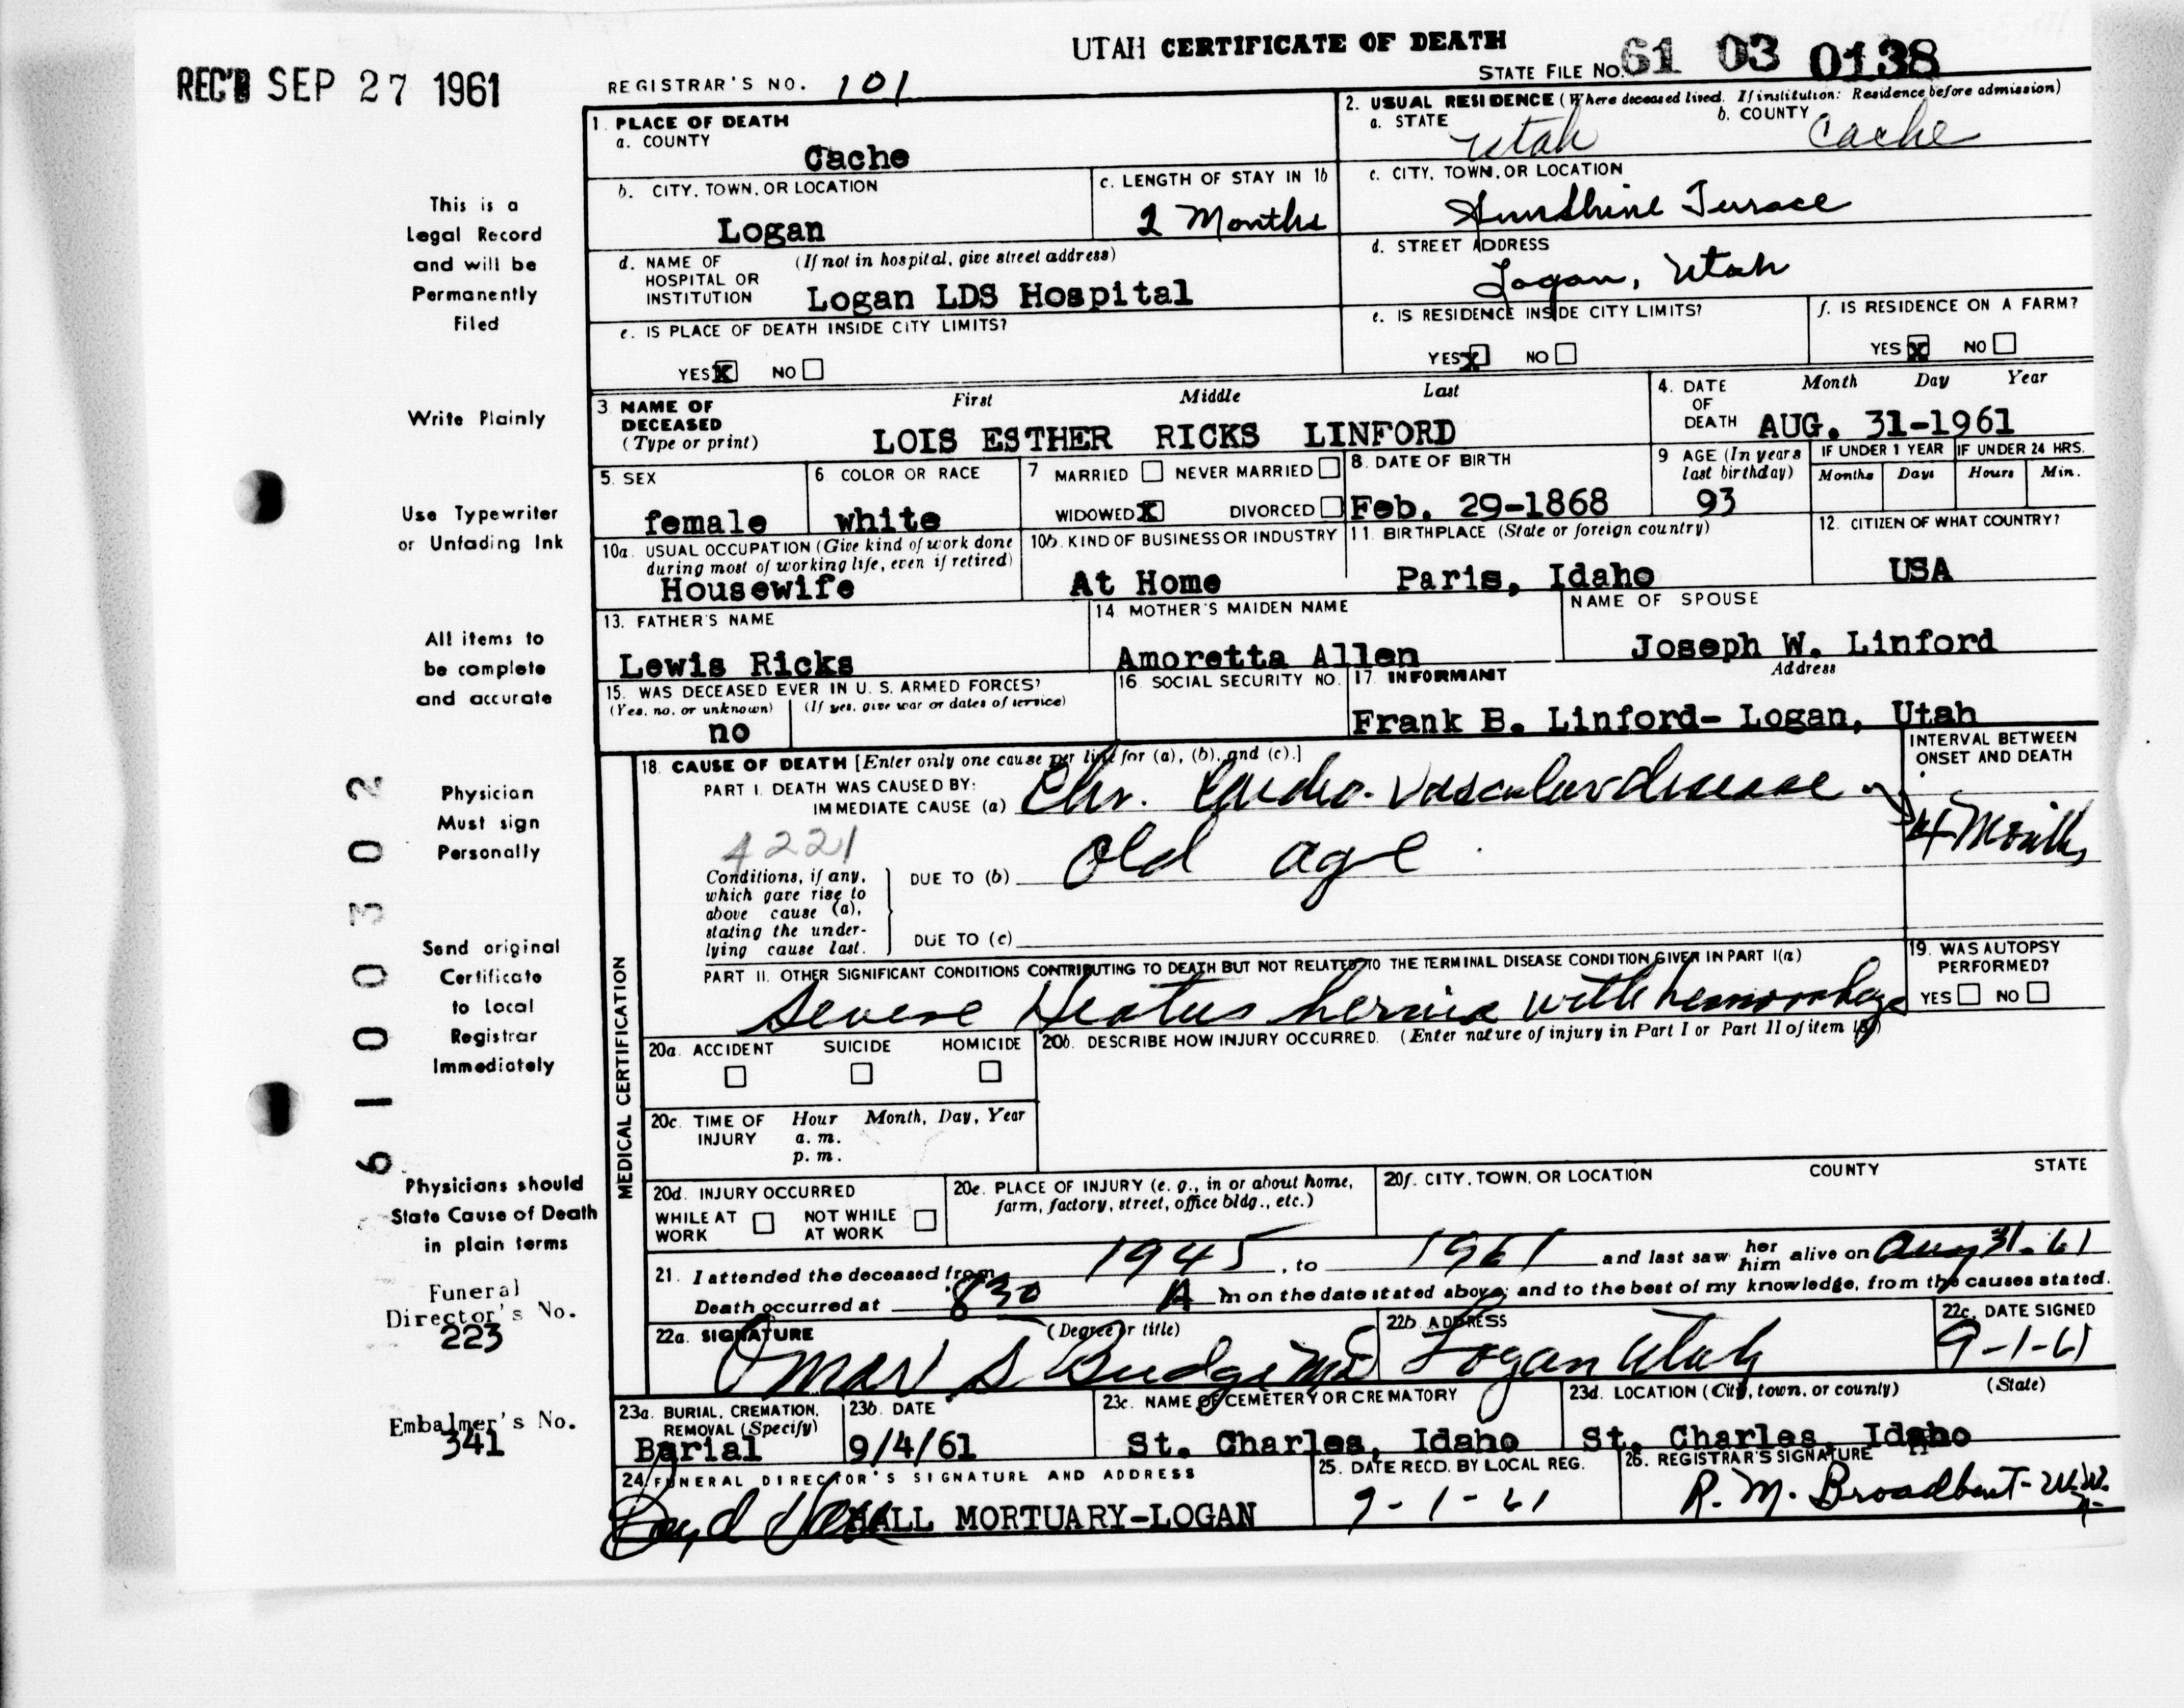 UTAH CERTIFICATE OF DEATH
REC'D SEP 27 1961
REGISTRAR'S NO. 101
STATE FILE NO. 61 03 0138
1. PLACE OF DEATH
a. COUNTY
Cache
2. USUAL RESIDENCE (Where deceased lived. If institution: Residence before admission)
a. STATE Utah
b. COUNTY Cache
b. CITY, TOWN, OR LOCATION
Logan
c. LENGTH OF STAY IN 1b
2 Months
c. CITY, TOWN, OR LOCATION
Sunshine Terrace
d. NAME OF HOSPITAL OR INSTITUTION
(If not in hospital, give street address)
Logan LDS Hospital
d. STREET ADDRESS
Logan, Utah
e. IS PLACE OF DEATH INSIDE CITY LIMITS?
YES X NO
e. IS RESIDENCE INSIDE CITY LIMITS?
YES X NO
f. IS RESIDENCE ON A FARM?
YES X NO
3. NAME OF DECEASED (Type or print)
First Middle Last
LOIS ESTHER RICKS LINFORD
4. DATE OF DEATH
Month Day Year
AUG. 31-1961
5. SEX
female
6. COLOR OR RACE
white
7 MARRIED NEVER MARRIED
WIDOWED X DIVORCED
8. DATE OF BIRTH
Feb. 29-1868
9 AGE (In years last birthday)
93
IF UNDER 1 YEAR
Months Days
IF UNDER 24 HRS.
Hours Min.
10a. USUAL OCCUPATION (Give kind of work done during most of working life, even if retired)
Housewife
10b. KIND OF BUSINESS OR INDUSTRY
At Home
11. BIRTHPLACE (State or foreign country)
Paris, Idaho
12. CITIZEN OF WHAT COUNTRY?
USA
13. FATHER'S NAME
Lewis Ricks
14 MOTHER'S MAIDEN NAME
Amoretta Allen
NAME OF SPOUSE
Joseph W. Linford
15. WAS DECEASED EVER IN U. S. ARMED FORCES?
(Yes, no, or unknown) (If yes, give war or dates of service)
no
16. SOCIAL SECURITY NO.
17. INFORMANT Address
Frank B. Linford- Logan, Utah
MEDICAL CERTIFICATION
18. CAUSE OF DEATH [Enter only one cause per line for (a), (b), and (c).]
PART I. DEATH WAS CAUSED BY:
IMMEDIATE CAUSE (a) Chr. Cardio-Vascular disease
INTERVAL BETWEEN ONSET AND DEATH
4 Months
4221
Conditions, if any, which gave rise to above cause (a), stating the underlying cause last.
DUE TO (b) Old age
DUE TO (c)
PART II. OTHER SIGNIFICANT CONDITIONS CONTRIBUTING TO DEATH BUT NOT RELATED TO THE TERMINAL DISEASE CONDITION GIVEN IN PART I(a)
Severe Hiatus hernia with hemorrhage
19. WAS AUTOPSY PERFORMED?
YES NO
20a. ACCIDENT SUICIDE HOMICIDE
20b. DESCRIBE HOW INJURY OCCURRED. (Enter nature of injury in Part I or Part II of item 18)
20c. TIME OF INJURY
Hour Month, Day, Year
a. m.
p. m.
20d. INJURY OCCURRED
WHILE AT WORK NOT WHILE AT WORK
20e. PLACE OF INJURY (e. g., in or about home, farm, factory, street, office bldg., etc.)
20f. CITY, TOWN, OR LOCATION COUNTY STATE
21. I attended the deceased from 1945, to 1961 and last saw her him alive on Aug 31-61
Death occurred at 830 A m on the date stated above; and to the best of my knowledge, from the causes stated.
22a. SIGNATURE (Degree or title)
Omar S Budge MD
22b. ADDRESS
Logan Utah
22c. DATE SIGNED
9-1-61
23a. BURIAL, CREMATION, REMOVAL (Specify)
Burial
23b. DATE
9/4/61
23c. NAME OF CEMETERY OR CREMATORY
St. Charles, Idaho
23d. LOCATION (City, town, or county) (State)
St. Charles, Idaho
24. FUNERAL DIRECTOR'S SIGNATURE AND ADDRESS
HALL MORTUARY-LOGAN
25. DATE RECD. BY LOCAL REG.
9-1-61
26. REGISTRAR'S SIGNATURE
R. M. Broadbent
This is a
Legal Record
and will be
Permanently
Filed
Write Plainly
Use Typewriter
or Unfading Ink
All items to
be complete
and accurate
Physician
Must sign
Personally
Send original
Certificate
to Local
Registrar
Immediately
Physicians should
State Cause of Death
in plain terms
Funeral
Director's No.
223
Embalmer's No.
341
6 1 0 0 3 0 2